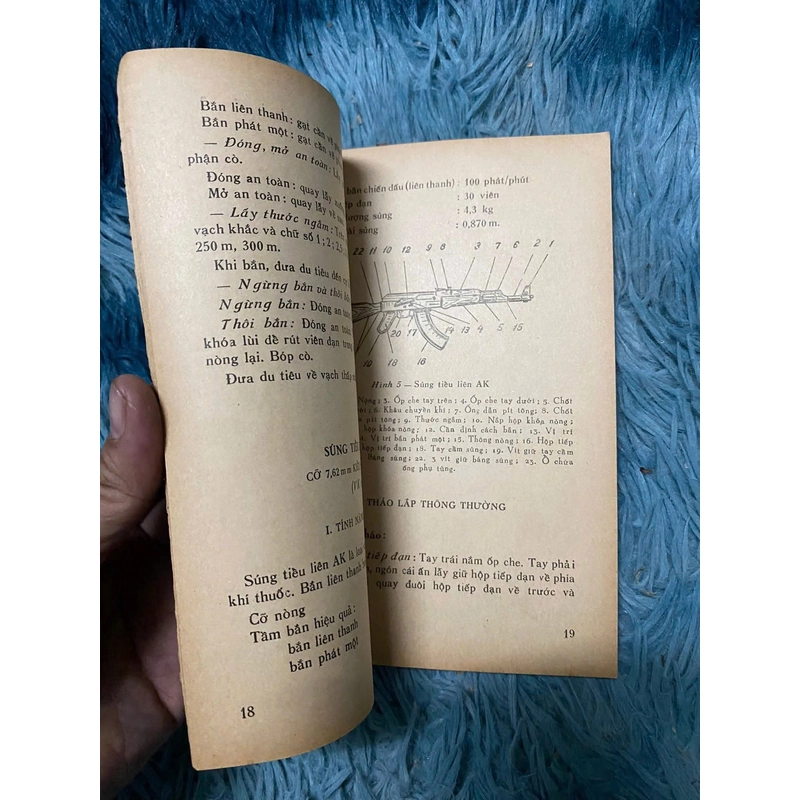 Bắn liên thanh: gạt cần về
Bắn phát một: gạt cần về
— Đóng, mở an toàn:
phận cò.
Đóng an toàn: quay lẫy
Mở an toàn: quay lẫy về
— Lấy thước ngắm:
vạch khắc và chữ số 1; 2;
250 m, 300 m.
Khi bắn, đưa du tiêu đến
— Ngừng bắn và thôi
Ngừng bắn: Đóng an
Thôi bắn: Đóng an toàn
khóa lùi để rút viên đạn
nòng lại. Bóp cò.
Đưa du tiêu về vạch
SÚNG
CỠ 7,62 mm
I. TÍNH
Súng tiểu liên AK là
khí thuốc. Bắn liên thanh
Cỡ nòng
Tầm bắn hiệu quả:
bắn liên thanh
bắn phát một
18
bắn chiến đấu (liên thanh) : 100 phát/phút
đạn : 30 viên
súng : 4,3 kg
súng : 0,870 m.
22 11 10 12 9 8 3 7 6 2 1
20 17 14 13 4 5 15
16
Hình 5 — Súng tiểu liên AK
3. Ốp che tay trên; 4. Ốp che tay dưới; 5. Chốt
6. Khâu chuyền khí; 7. Ống dẫn pít tông; 8. Chốt
pít tông; 9. Thước ngắm; 10. Nắp hộp khóa nòng;
khóa nòng; 12. Cần định cách bắn; 13. Vị trí
Vị trí bắn phát một; 15. Thông nòng; 16. Hộp tiếp
hộp tiếp đạn; 18. Tay cầm súng; 19. Vít giữ tay cầm
súng; 22. 3 vít giữ báng súng; 23. Ổ chứa
ống phụ tùng.
THÁO LẮP THÔNG THƯỜNG
tiếp đạn: Tay trái nắm ốp che. Tay phải
, ngón cái ấn lẫy giữ hộp tiếp đạn về phía
quay đuôi hộp tiếp đạn về trước và
19